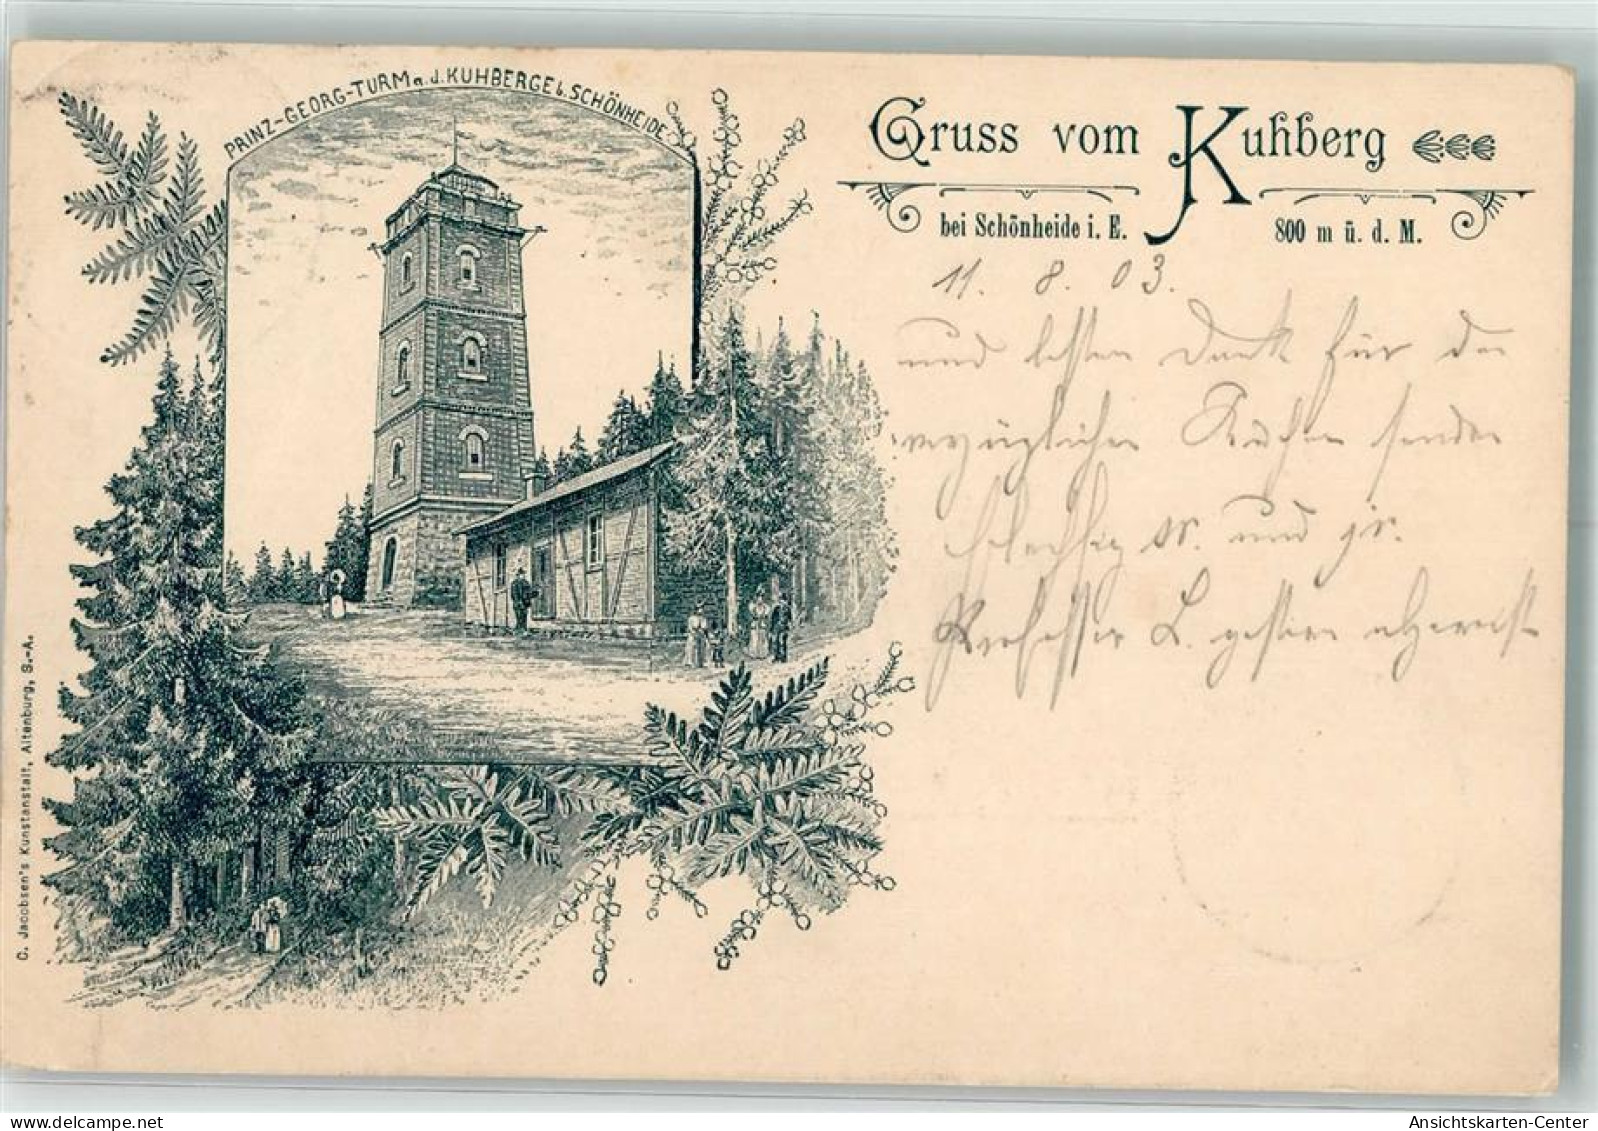 PRINZ-GEORG-TURM a. d. KUHBERGE b. SCHÖNHEIDE
Gruss vom Kuhberg
bei Schönheide i. E. 800 m ü. d. M.
11. 8. 03.
und besten Dank für die
vorzüglichen Kuchen sendet
und
Professor L. gestern
C. Jacobsen's Kunstanstalt, Altenburg, S.-A.
Ansichtskarten-Center